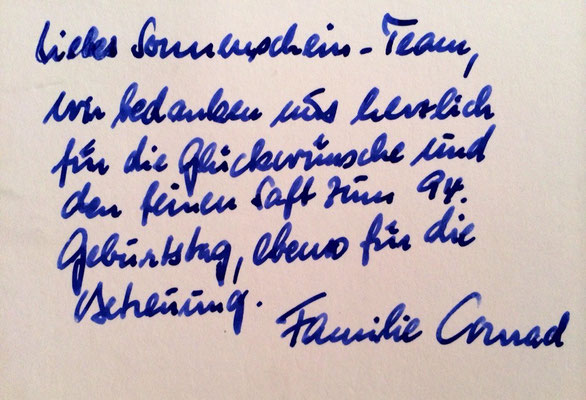 Liebes Sonnenschein-Team,
wir bedanken uns herzlich
für die Glückwünsche und
den feinen Saft zum 94.
Geburtstag, ebenso für die
Betreuung.
Familie Conrad